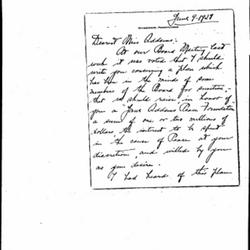 June 9-1929
Dearest Miss Addams:
At our Board Meeting last
week it was voted that I should
write you concerning a plan which
has been in the minds of some
members of the Board for sometime,
that we should raise, in honor of
you a Jane Addams Peace Foundation
a sum of one or two millions of
dollars the interest to be spent
in the cause of Peace at your
discretion, and willed by you
as you desire.
I had heard of this plan